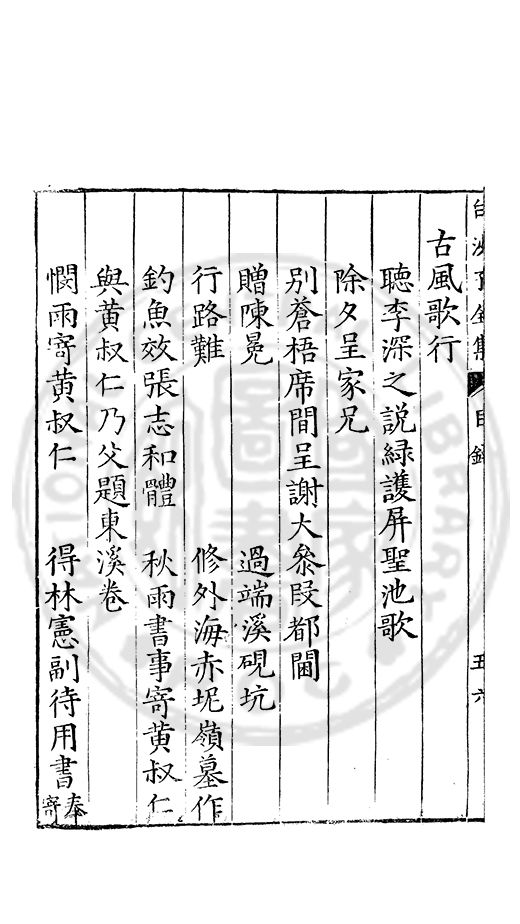 古風歌行
聽李深之説緑護屏聖池歌
除夕呈家兄
別蒼梧席間呈謝大叅段都閫
贈陳冕 過端溪硯坑
行路難 修外海赤坭嶺墓作
釣魚效張志和體 秋雨書事寄黄叔仁
與黄叔仁乃父題東溪卷
憫雨寄黄叔仁 得林憲副待用書奉寄
目錄
五六